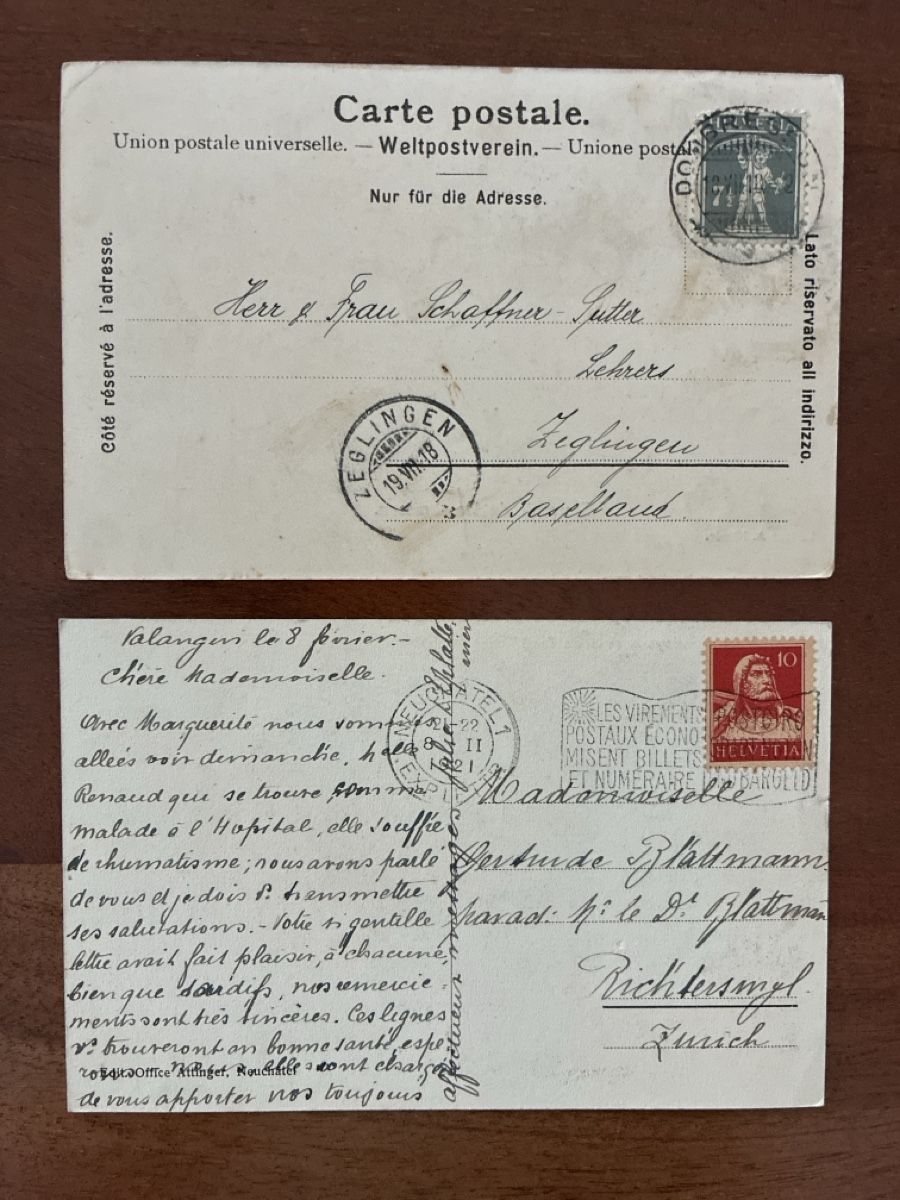 Carte postale.
Union postale universelle. — Weltpostverein. — Unione postal
Nur für die Adresse.
Côté réservé à l'adresse.
Lato riservato all indirizzo.
7½
Herr & Frau Schaffner-Sutter
Lehrers
Zeglingen
Baselland.
ZEGLINGEN
19.VII.18
Valangin le 8 février.-
Chère Mademoiselle.
Avec Marguerite nous sommes
allées voir dimanche, Mlle
Renaud qui se trouve comme
malade à l'Hopital, elle souffre
de rhumatisme; nous avons parlé
de vous et je dois vs transmettre
ses salutations. - Votre si gentille
lettre avait fait plaisir, à chacune,
bien que tardifs, nos remercie-
ments sont très sincères. Ces lignes
vs trouveront en bonne santé, espé
elles sont chargées
de vous apporter nos toujours
affectueux messages. Julie
Edit. Office Attinger, Neuchâtel
NEUCHATEL 1
21-22
8 II
LES VIREMENTS
POSTAUX ÉCONO
MISENT BILLETS
ET NUMÉRAIRE
10
HELVETIA
Mademoiselle
Gertrude Blattmann
Mr le Dr Blattman
Richterswyl.
Zurich